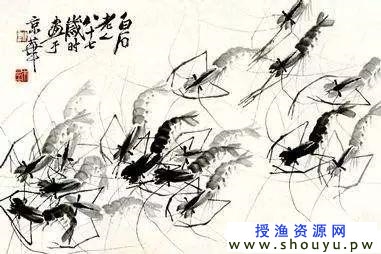 白石
老人
八十七
歲時
画于
京華
授渔资源网
www.shouyu.pw